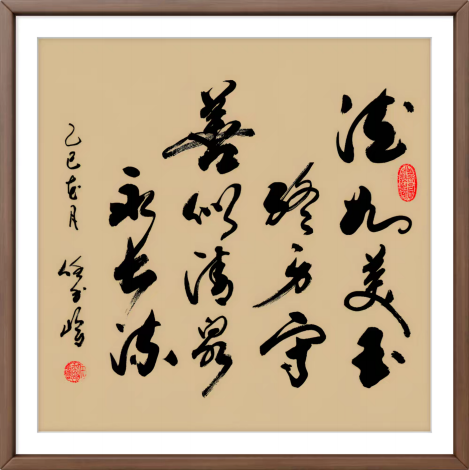 德如美玉
终方守
善似清泉
永长流
乙巳 月